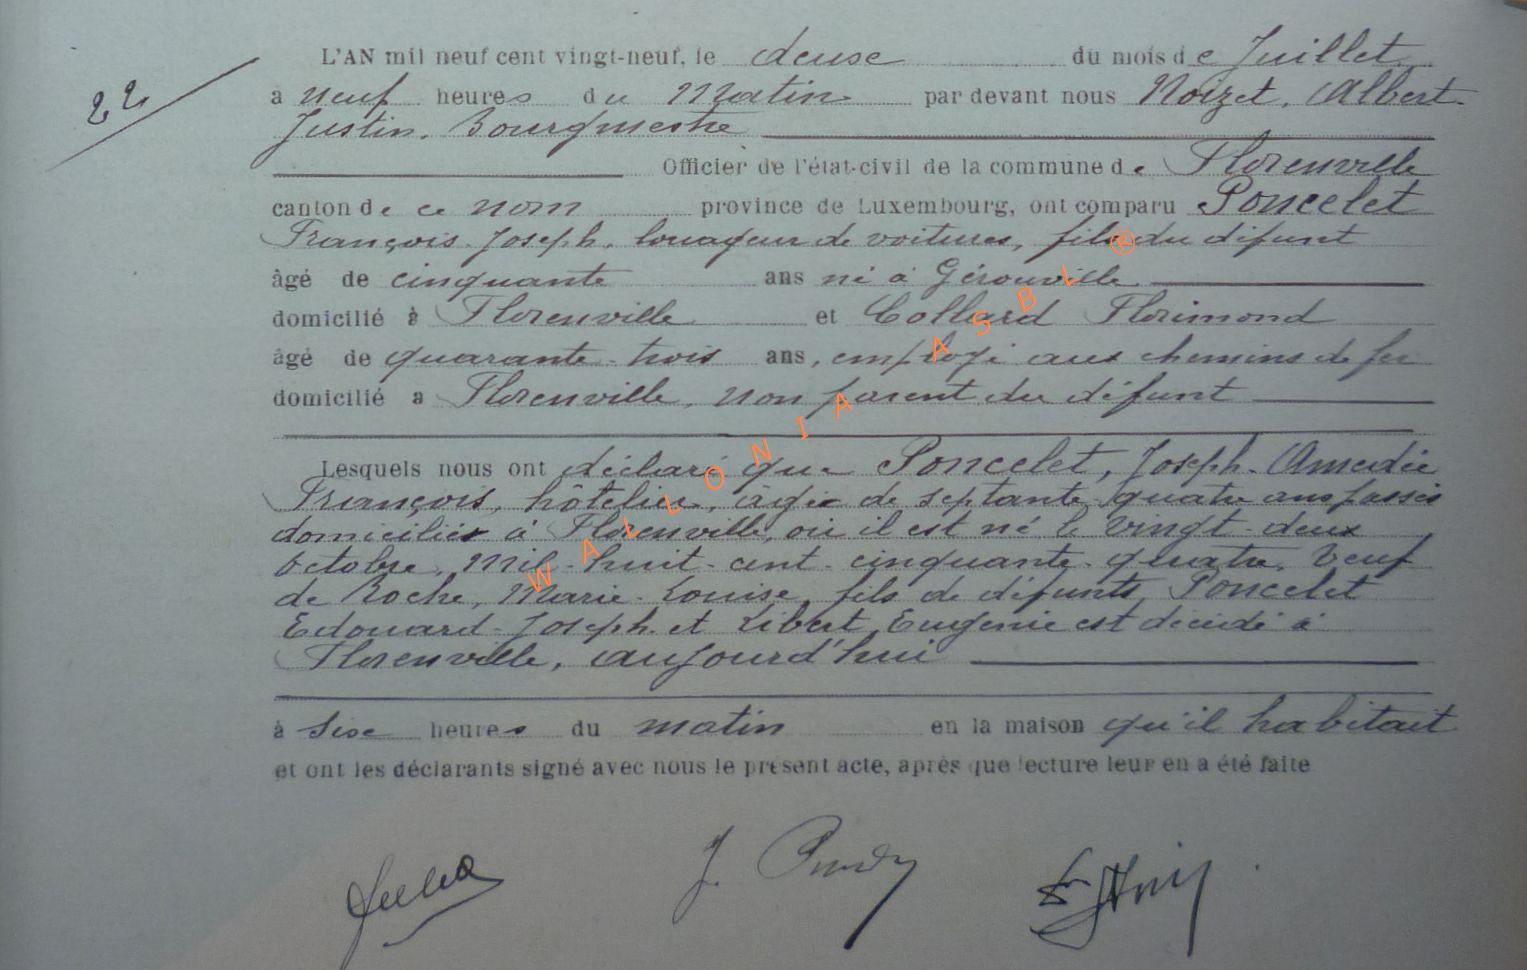 22
L'AN mil neuf cent vingt-neuf, le deuse du mois de Juillet
à neuf heures du Matin par devant nous Noizet, Albert
Justin, Bourgmestre
Officier de l'état-civil de la commune de Florenville
canton de ce nom province de Luxembourg, ont comparu Poncelet
François Joseph, louageur de voitures, fils du défunt
âgé de cinquante ans né à Gérouville
domicilié à Florenville et Collard Florimond
âgé de quarante-trois ans, employé aux chemins de fer
domicilié a Florenville, non parent du défunt
Lesquels nous ont déclaré que Poncelet, Joseph-Amédée
François, hôtelier, âgé de septante-quatre ans passés
domicilié à Florenville, où il est né le Vingt-deux
Octobre, Mil-huit-cent-cinquante-quatre, Veuf
de Roche, Marie-Louise, fils de défunts Poncelet
Edouard-Joseph et Libert, Eugénie est décédé à
Florenville, aujourd'hui
à sise heures du matin en la maison qu'il habitait
et ont les déclarants signé avec nous le présent acte, après que lecture leur en a été faite
J.
WALLONIA ASBL ®